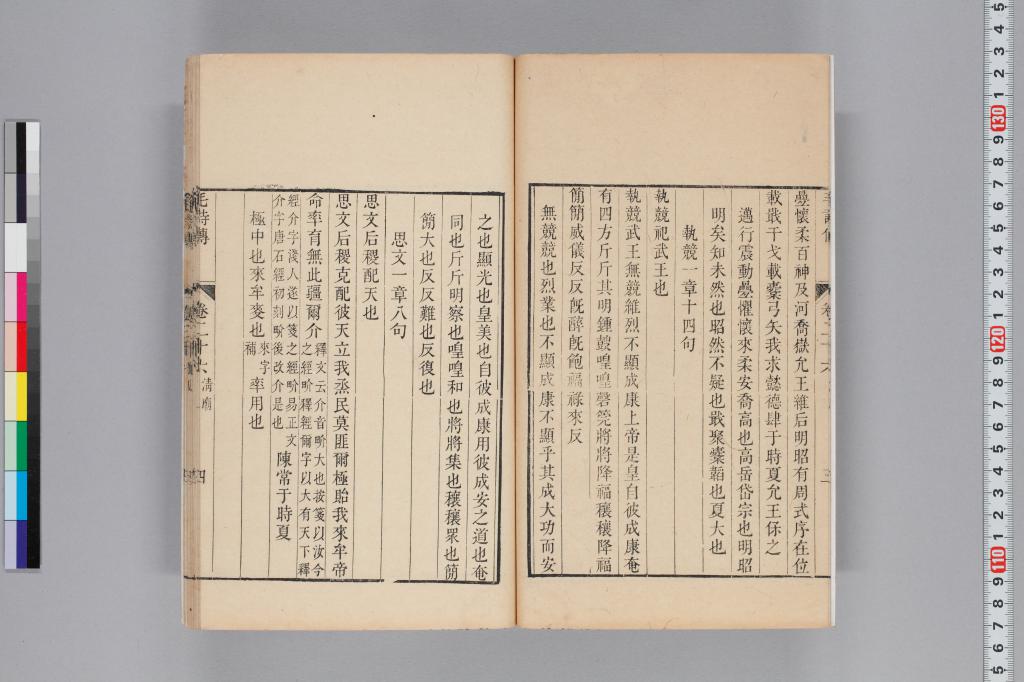 疊懷柔百神及河喬嶽允王維后明昭有周式序在位
載戢干戈載櫜弓矢我求懿德肆于時夏允王保之
邁行震動疊懼懷來柔安喬高也高岳岱宗也明昭
明矣知未然也昭然不疑也戢聚櫜韜也夏大也
執競一章十四句
執競祀武王也
執競武王無競維烈不顯成康上帝是皇自彼成康奄
有四方斤斤其明鍾鼓喤喤磬筦將將降福穰穰降福
簡簡威儀反反旣醉旣飽福祿來反
無競競也烈業也不顯成康不顯乎其成大功而安
之也顯光也皇美也自彼成康用彼成安之道也奄
同也斤斤明察也喤喤和也將將集也穰穰眾也簡
簡大也反反難也反復也
思文一章八句
思文后稷配天也
思文后稷克配彼天立我烝民莫匪爾極貽我來牟帝
命率育無此疆爾介釋文云介音畍大也按箋以汝今之經畍釋經爾字以大有天下釋
經介字淺人遂以箋之經畍易正文介字唐石經初刻畍後改介是也陳常于時夏
極中也來牟麥也來字補率用也
毛詩傳 卷二十六 清廟 四